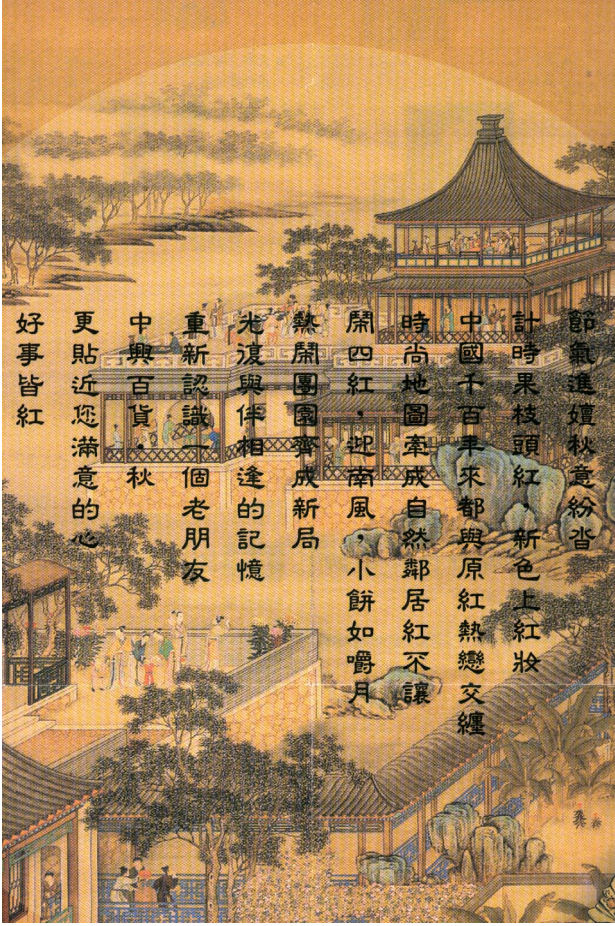 節氣進嬗秋意紛沓
計時果枝頭紅，新色上紅妝
中國千百年來都與原紅熱戀交纏
時尚地圖牽成自然鄰居紅不讓
鬧四紅，迎南風，小餅如嚼月
熱鬧團圓齊成新局
光復與伴相逢的記憶
重新認識一個老朋友
中興百貨．秋
更貼近您滿意的心
好事皆紅